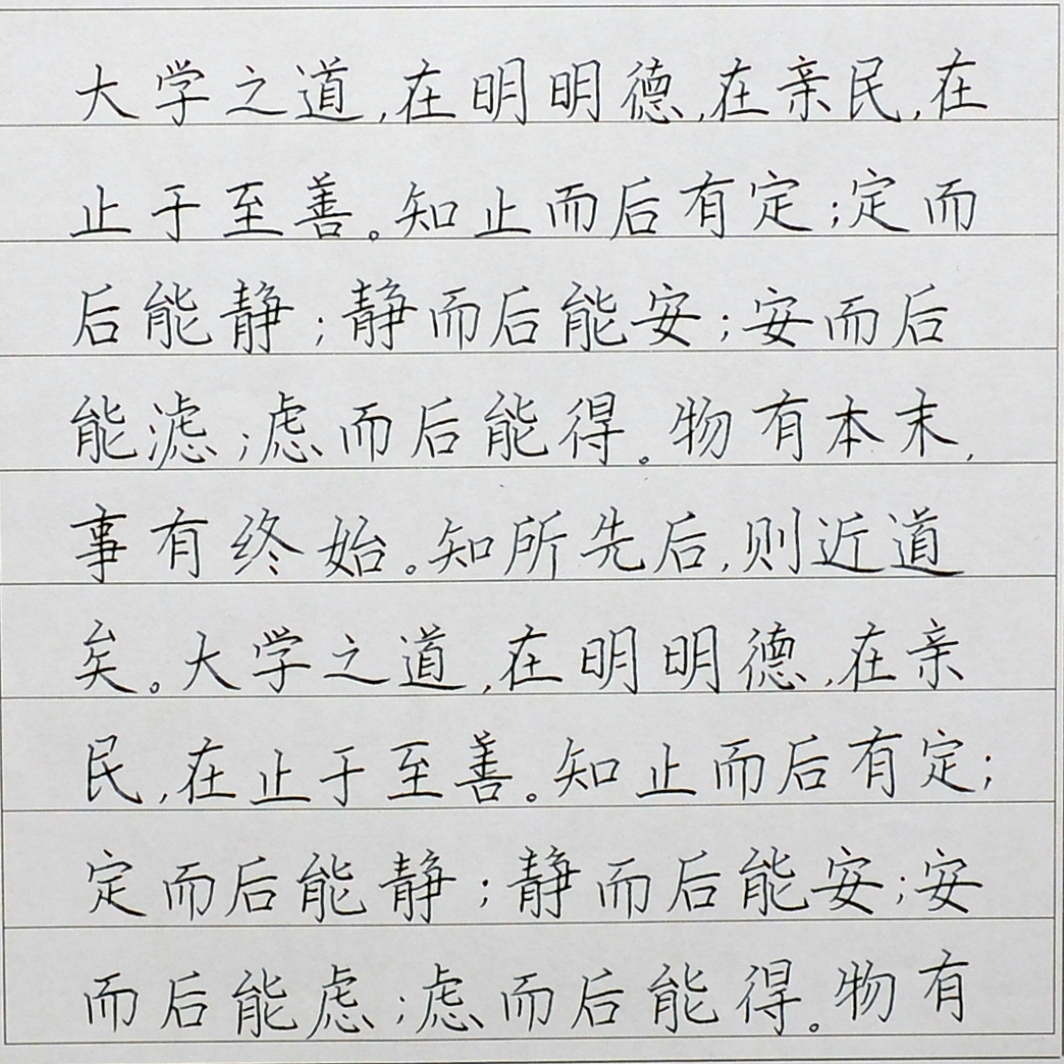 大学之道,在明明德,在亲民,在
止于至善。知止而后有定;定而
后能静;静而后能安;安而后
能滤;虑而后能得。物有本末,
事有终始。知所先后,则近道
矣。大学之道,在明明德,在亲
民,在止于至善。知止而后有定;
定而后能静;静而后能安;安
而后能虑;虑而后能得。物有